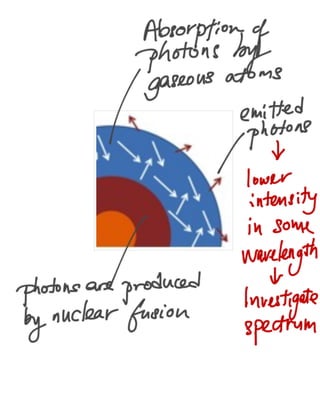 Absorption of
photons by
gaseous atoms
emitted
photons
lower
intensity
in some
wavelength
Investigate
spectrum
photons are produced
by nuclear fusion